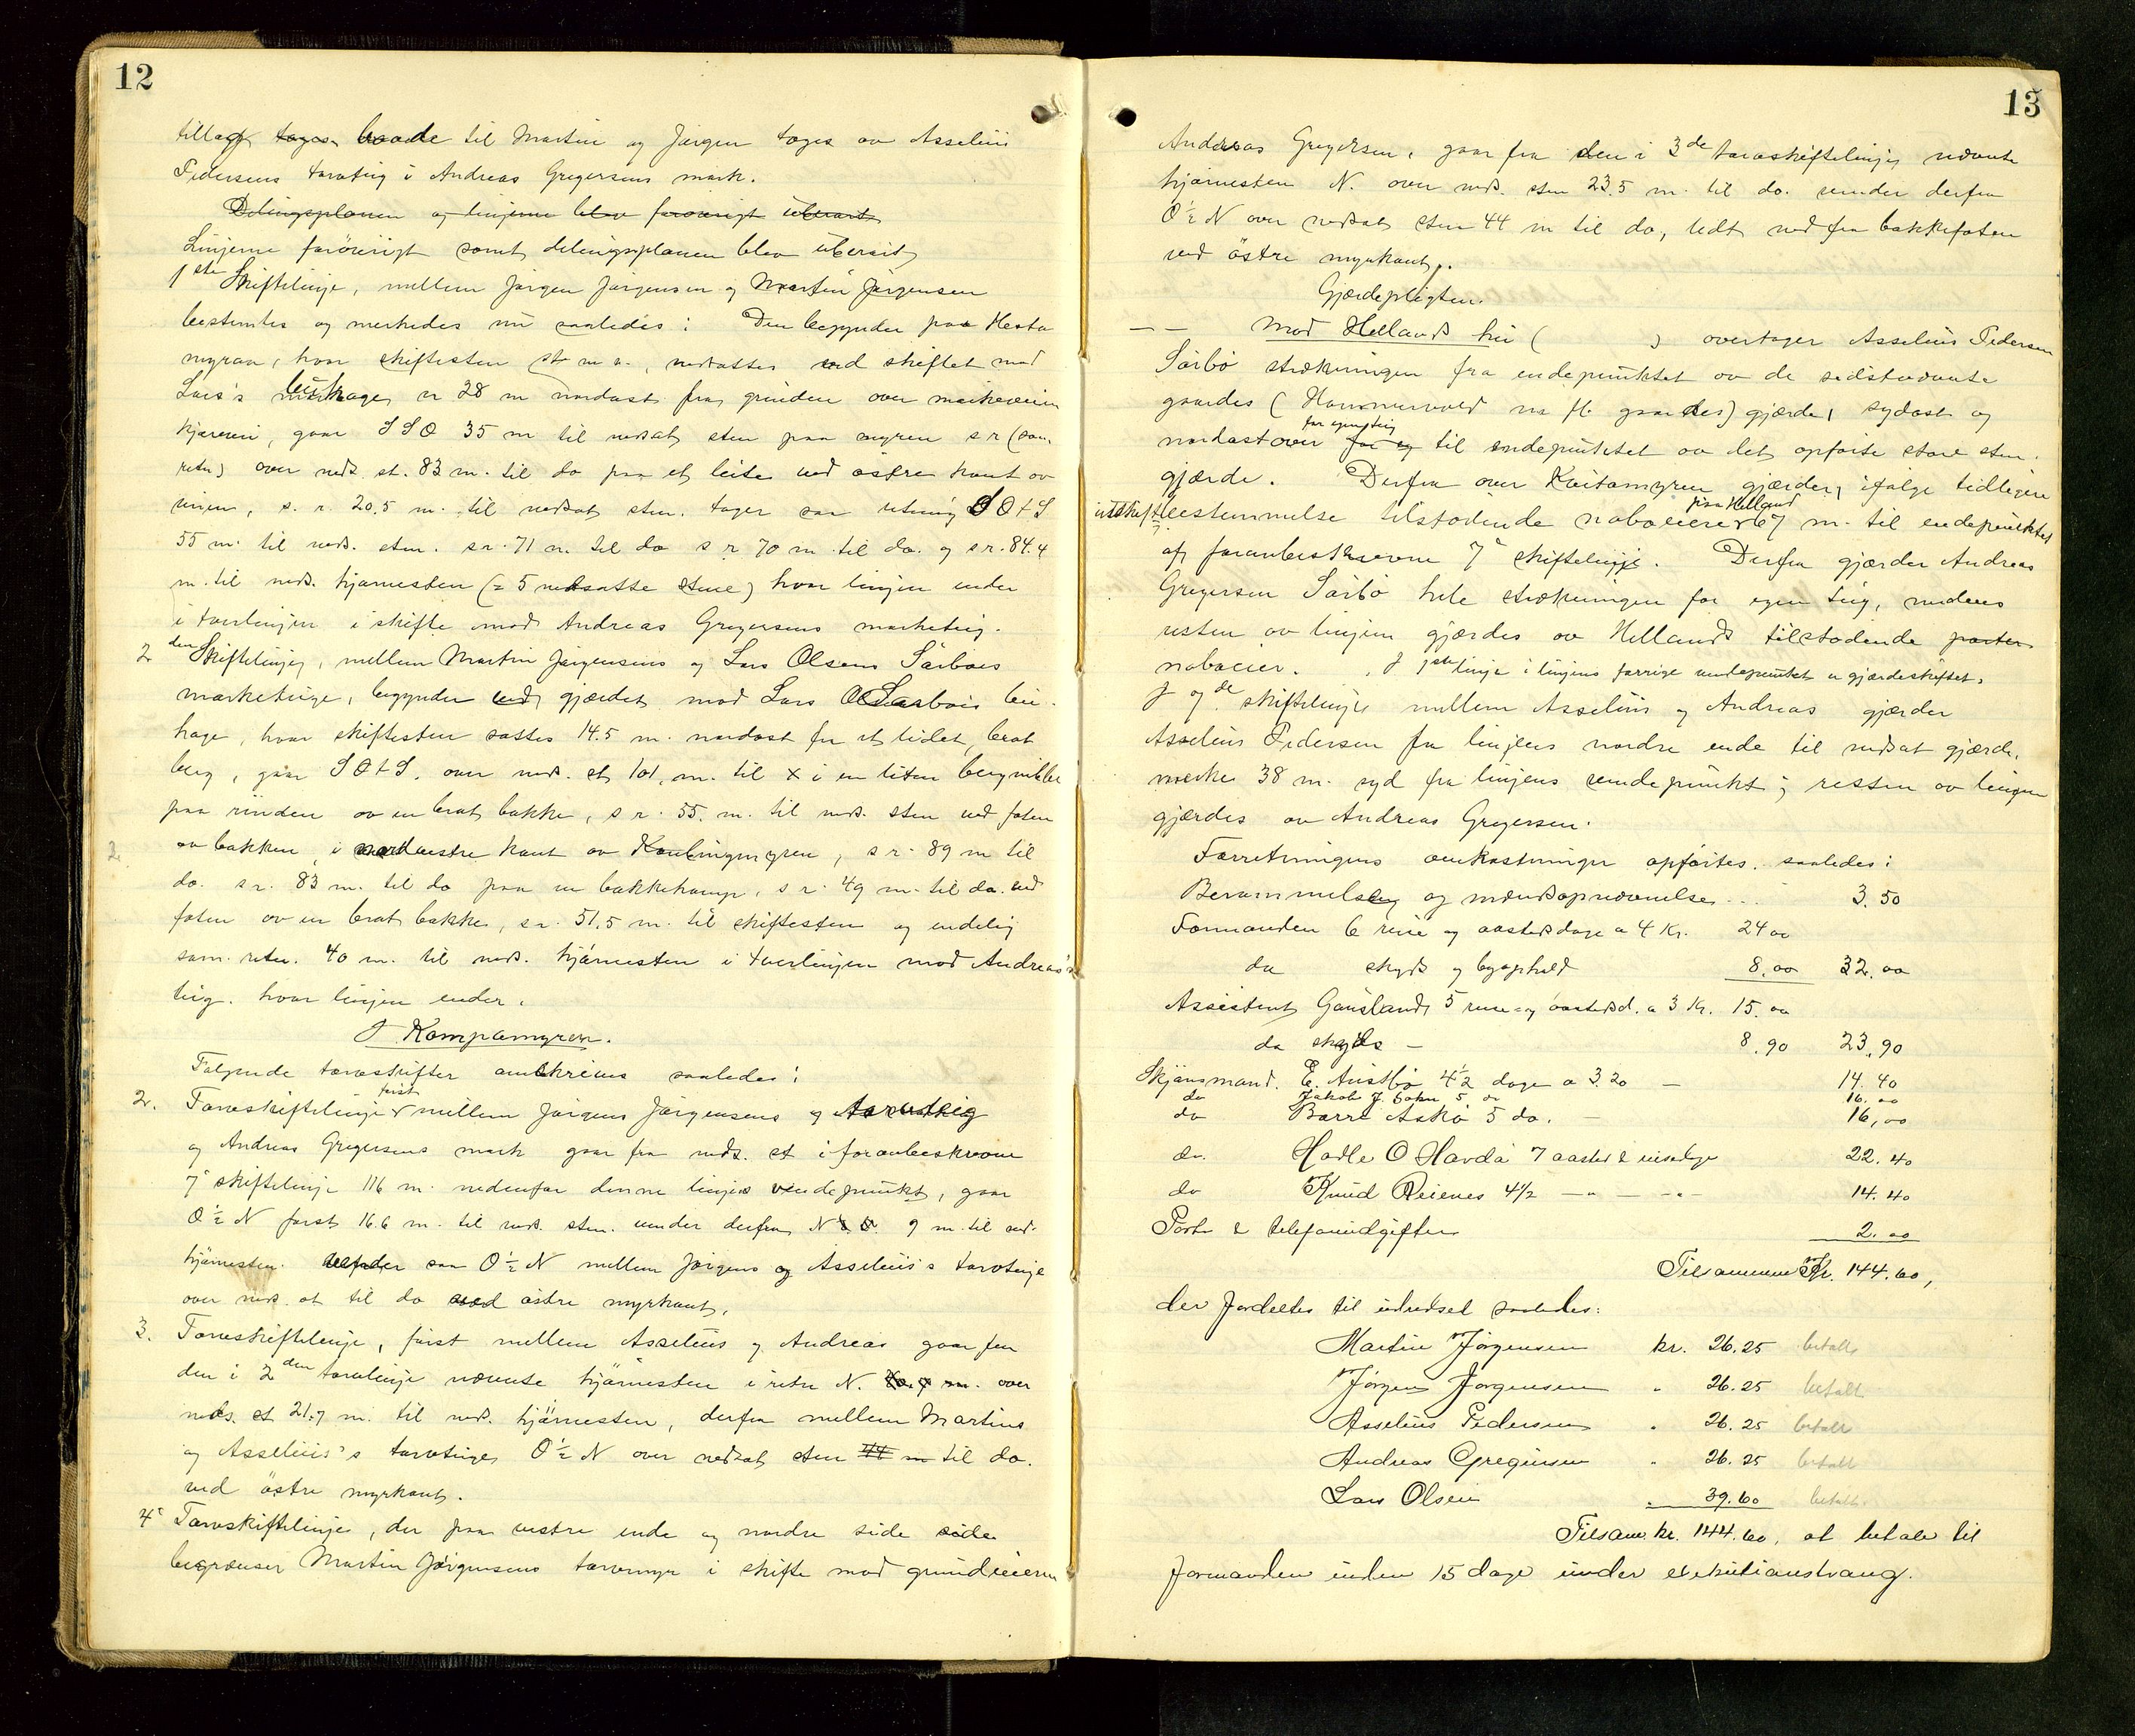 12
tillagt tages baade til Martin og Jørgen tages av Asselius
Pedersens torvteig i Andreas Gregersens mark.
Delingsplanen og linjerne blev forøvrigt
Linjerne forøvrigt samt delingsplanen blev
1ste Skiftelinje, mellem Jørgen Jørgensen og Martin Jørgensen
bestemtes og merkedes nu saaledes: Den begynder paa Hesta
myraa, hvor skiftesten st m v., nedsattes ved skiftet mod
Lars's buhage, 28 m nordost fra grinden over markeveien
kjørevei, gaar SSO 35 m til nedsat sten paa myren s r (sam.
retn) over neds. st. 83 m. til do paa et leite ved østre kant av
myren, s. r. 20.5 m. til nedsat sten. tager saa retning SOtS
55 m. til neds. sten. s r. 71 m. til do s r 70 m. til do. og s r. 84.4
m. til neds. hjørnesten (= 5 nedsatte stene) hvor linjen ender
i tverlinjen i skifte mod Andreas Gregersens marketeig.
2den Skiftelinje, mellem Martin Jørgensens og Lars Olsens Sørbøes
marketeige, begynder ved gjærdet mod Lars O Sørbøes bu-
hage, hvor skiftesten sattes 14.5 m. nordost for et lidet, brat
berg, gaar SOtS. over neds. st 101 m. til x i en liten bergnibbe
paa rinden av en brat bakke, s r. 55. m. til neds. sten ved foten
av bakken, i nordvestre kant av myren, s r. 89 m til
do. s r. 83 m. til do paa en bakkekamp, s r. 49 m. til do. ved
foten av en brat bakke, s r. 51.5 m. til skiftesten og endelig
sam. retn. 40 m. til neds. hjørnesten i tverlinjen mod Andreas's
teig. hvor linjen ender.
I Kampamyren.
Følgende torvskifter omskrives saaledes:
2. Torveskiftelinje først mellem Jørgens Jørgensens og torvteig
og Andreas Gregersens mark gaar fra neds. st i foranbeskrevne
7de skiftelinje 116 m. nedenfor denne linjes vendepunkt, gaar
O ½ N først 16.6 m. til neds. sten. vender derfra N. 9 m. til ned-
hjørnesten. vender saa O ½ N mellem Jørgens og Asselius's torvteige
over neds. st til do ved østre myrkant.
3. Torveskiftelinje, først mellem Asselius og Andreas gaar fra
den i 2den torvlinje nævnte hjørnesten i retn N. over
neds. st 21.7 m. til neds. hjørnesten, derfra mellem Martins
og Asselius's torvteige O ½ N over nedsat sten 44 m til do.
ved østre myrkant.
4de Torveskiftelinje, der paa vestre ende og nordre side side
begrænser Martin Jørgensens torvmyr i skifte mod grundeieren
13
Andreas Gregersen, gaar fra den i 3de torveskiftelinje nævnte
hjørnesten N. over neds. sten 23.5 m. til do. vender derfra
O ½ N over nedsat sten 44 m til do, lidt ned fra bakkefoten
ved østre myrkant.
Gjærdepligten.
— — Mod Hellands hei ( ) overtager Asselius Pedersen
Sørbø strækningen fra endepunktet av de sidstnævnte
gaardes (Hammervold m fl. gaardes) gjærde, sydost og
nordost over for egen teig for og til endepunktet av det opførte store sten-
gjærde. Derfra over Kvitamyren gjærder, ifølge tidligere
utskift. bestemmelse tilstødende naboeiere paa Helland 67 m. til endepunktet
af foranbeskrevne 7de skiftelinje. Derfra gjærder Andreas
Gregersen Sørbø hele strækningen for egen teig, medens
resten av linjen gjærdes av Hellands tilstødende parter
naboeier. I 1ste linje i linjens forrige vendepunktet er gjærdeskiftet.
I 7de skiftelinje mellem Asselius og Andreas gjærder
Asselius Pedersen fra linjens nordre ende til nedsat gjærde-
merke 38 m. syd fra linjens vendepunkt; resten av linjen
gjærdes av Andreas Gregersen.
Forretningens omkostninger opførtes saaledes:
Berammelse og mændsopnævnelse ... 3.50
Formanden 6 reise og aastedsdage a 4 Kr. 24 00
do skyds og ophold 8.00 32.00
Assistent Gausland 5 reise og aastedsd. a 3 Kr. 15.00
do skyds — 8.90 23.90
Skjønsmand. E. Austbø 4½ dage a 3.20 — 14.40
do Jakob J. 5 do 16.00
do Børre Askø 5 do. — 16,00
do. Hadle O Havdå 7 aasted & reisedage 22.40
do Knud Reienes 4½ — " — 14.40
Porto & telefonudgifter 2.00
Tilsammen Kr. 144.60,
der fordeltes til udredsel saaledes:
Martin Jørgensen kr. 26.25 betalt
Jørgen Jørgensen " 26.25 betalt
Asselius Pedersen " 26.25 betalt
Andreas Gregersen " 26.25 betalt
Lars Olsen " 39.60 betalt
Tilsam. kr. 144.60, at betale til
formanden inden 15 dage under exekutionstvang.